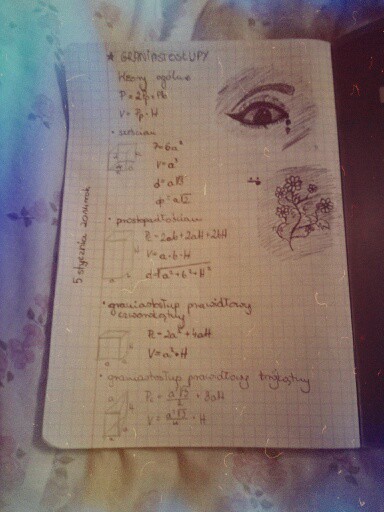 ★ GRANIASTOSŁUPY
Wzory ogólne
P = 2Pp + Pb
V = Pp · H
• sześcian
P = 6a²
V = a³
d = a√3
dp = a√2
5 stycznia
• prostopadłościan
Pc = 2ab + 2aH + 2bH
V = a · b · H
d = √a² + b² + H²
• graniastosłup prawidłowy
czworokątny
Pc = 2a² + 4aH
V = a² · H
• graniastosłup prawidłowy trójkątny
Pc = a²√3/2 + 3aH
V = a²√3/4 · H